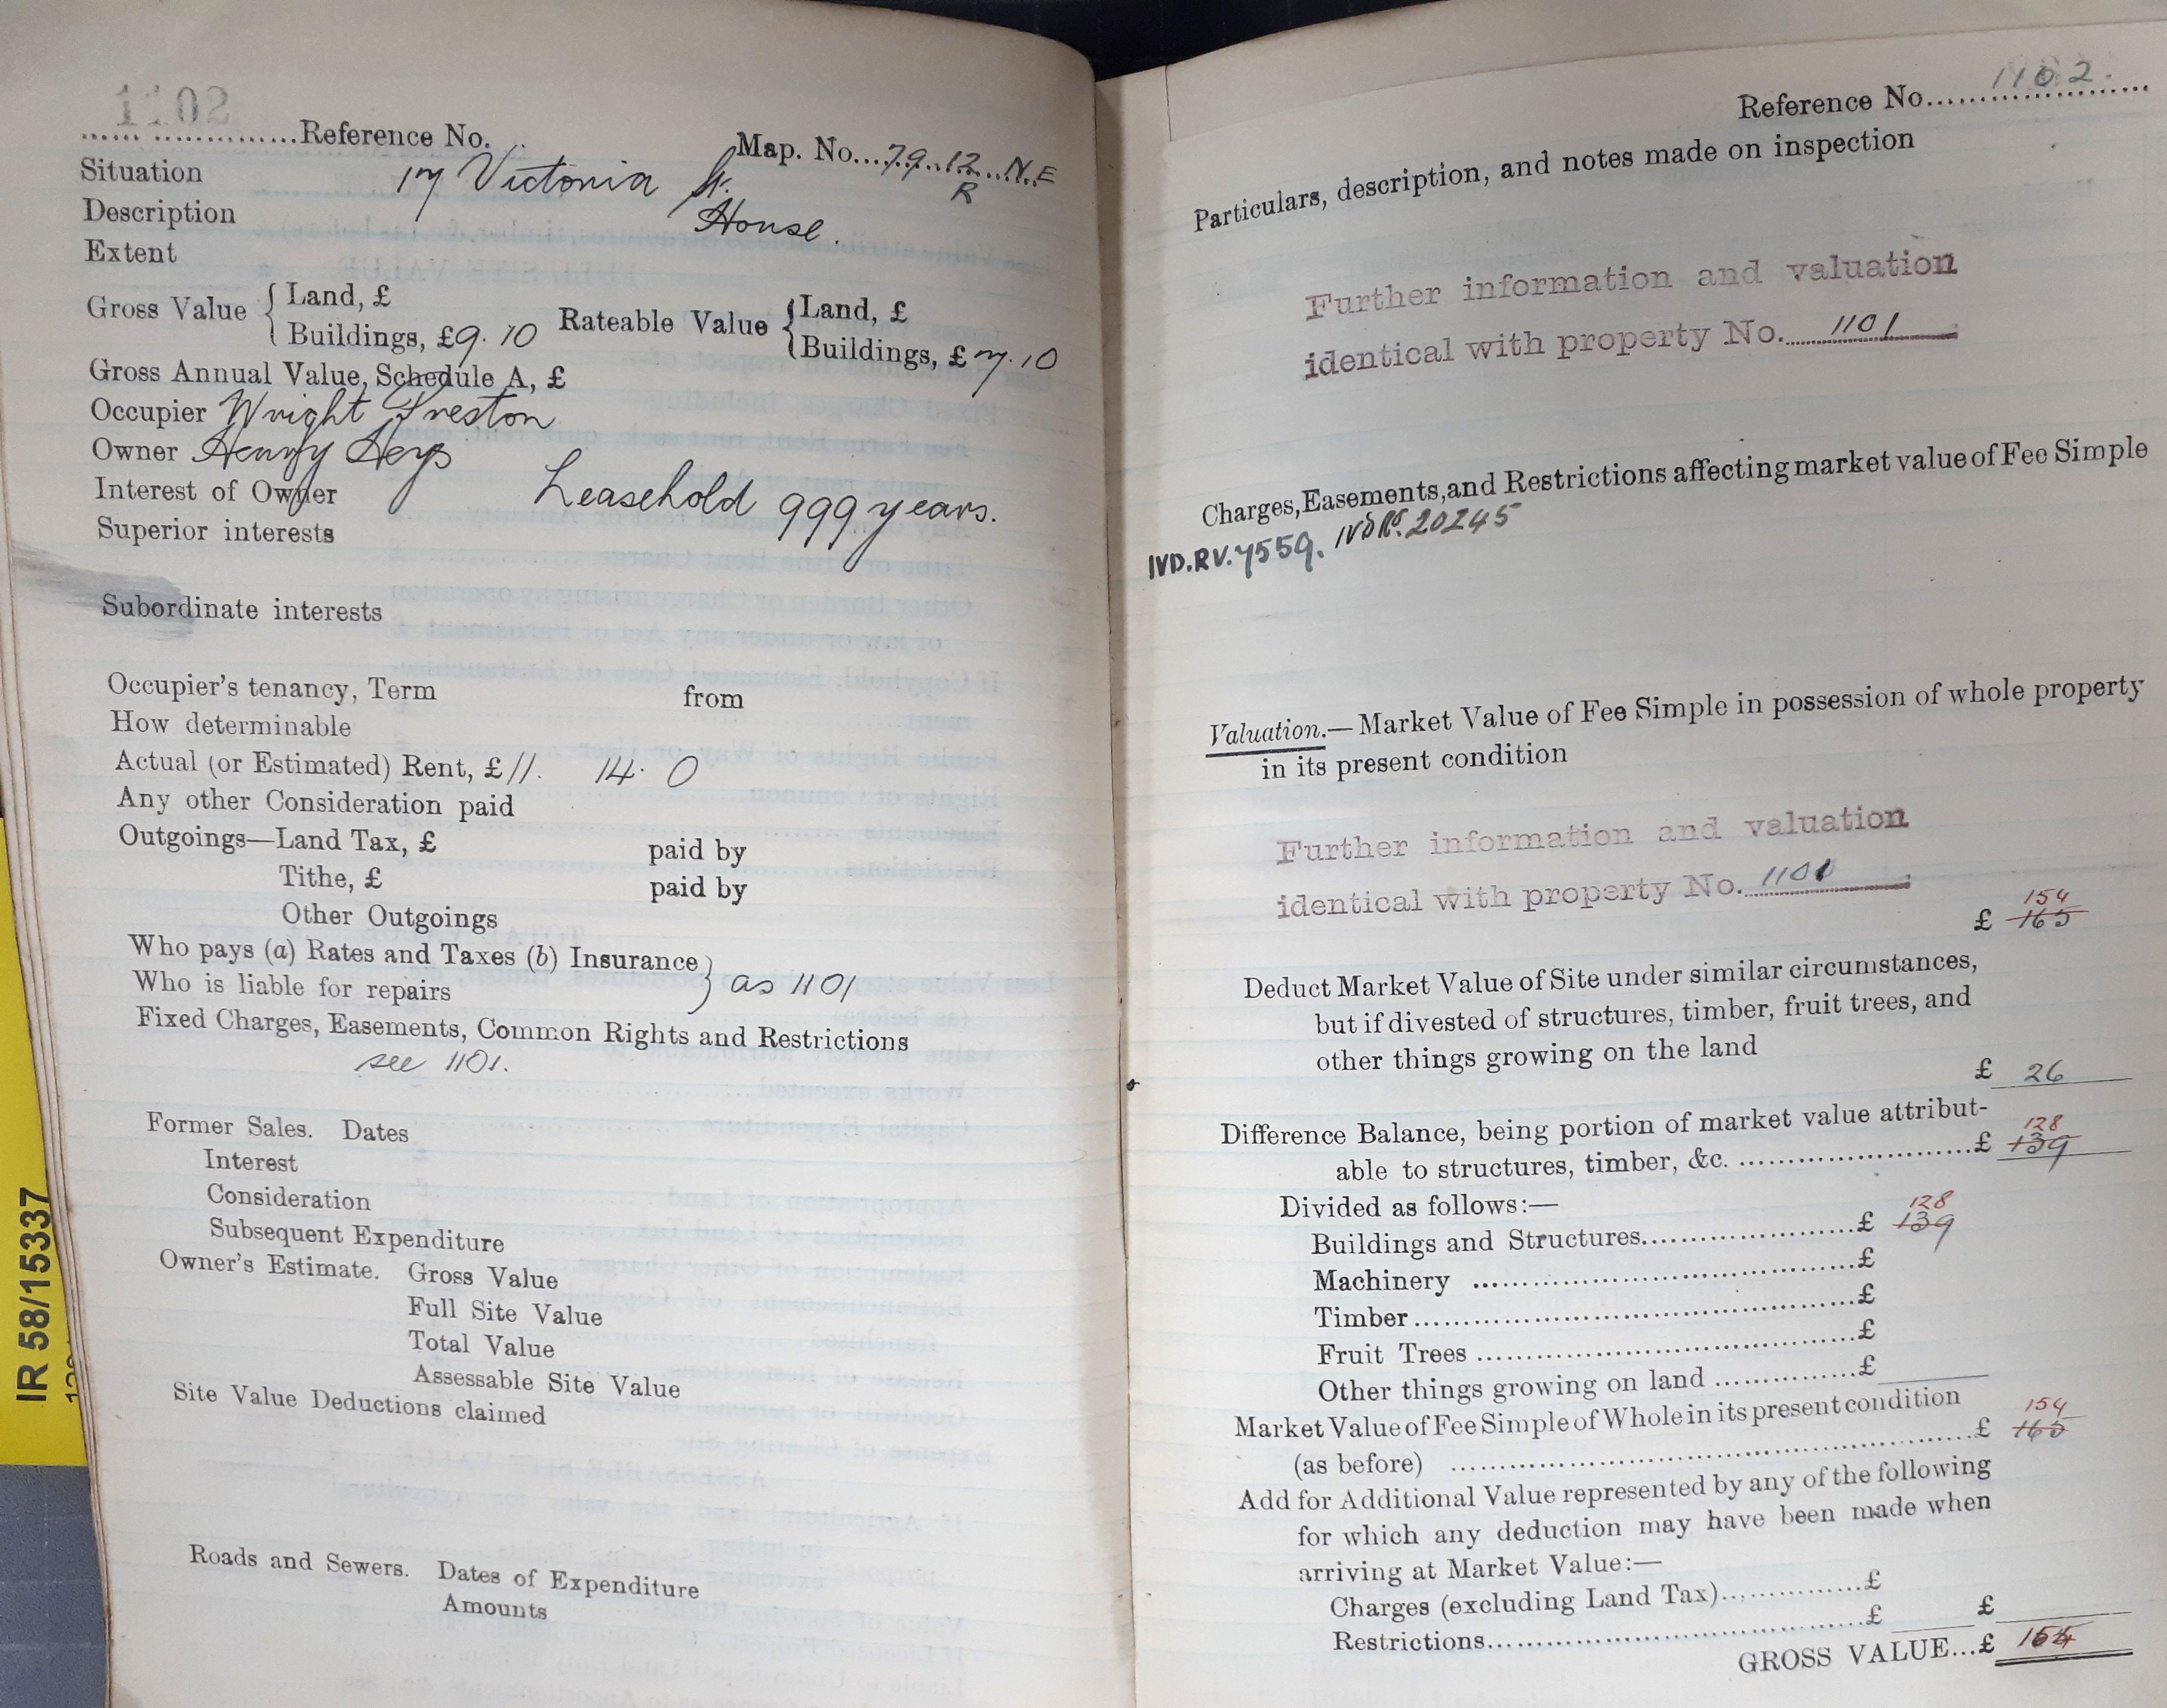 1102
Reference No.
Map. No. 79.12 N.E
R
Situation 17 Victoria St.
Description House.
Extent
Gross Value { Land, £
Buildings, £9. 10
Rateable Value { Land, £
Buildings, £ 7. 10
Gross Annual Value, Schedule A, £
Occupier Wright Preston
Owner Henry Heys
Interest of Owner Leasehold 999 years.
Superior interests
Subordinate interests
Occupier's tenancy, Term from
How determinable
Actual (or Estimated) Rent, £ 11. 14. 0
Any other Consideration paid
Outgoings—Land Tax, £ paid by
Tithe, £ paid by
Other Outgoings
Who pays (a) Rates and Taxes (b) Insurance
Who is liable for repairs } as 1101
Fixed Charges, Easements, Common Rights and Restrictions
see 1101.
Former Sales. Dates
Interest
Consideration
Subsequent Expenditure
Owner's Estimate. Gross Value
Full Site Value
Total Value
Assessable Site Value
Site Value Deductions claimed
Roads and Sewers. Dates of Expenditure
Amounts
IR 58/15337
Reference No. 1102.
Particulars, description, and notes made on inspection
Further information and valuation
identical with property No. 1101
Charges, Easements, and Restrictions affecting market value of Fee Simple
IVD.RV.7559. IVD Rº. 20245
Valuation.—Market Value of Fee Simple in possession of whole property
in its present condition
Further information and valuation
identical with property No. 1101
154
£ 165
Deduct Market Value of Site under similar circumstances,
but if divested of structures, timber, fruit trees, and
other things growing on the land
£ 26
Difference Balance, being portion of market value attribut-
128
able to structures, timber, &c. £ 139
Divided as follows:—
128
Buildings and Structures £ 139
Machinery £
Timber £
Fruit Trees £
Other things growing on land £
Market Value of Fee Simple of Whole in its present condition
154
(as before) £ 165
Add for Additional Value represented by any of the following
for which any deduction may have been made when
arriving at Market Value:—
Charges (excluding Land Tax) £
Restrictions £ £
GROSS VALUE...£ 154